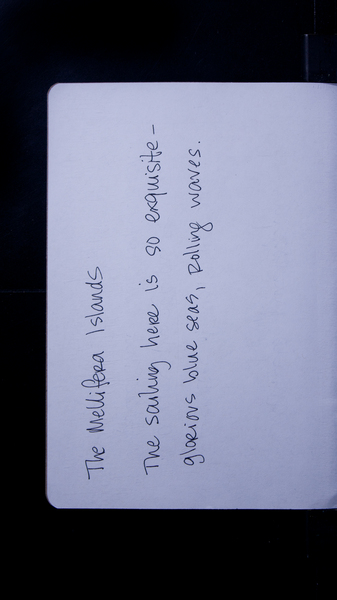 The Mellifera Islands
The sailing here is so exquisite –
glorious blue seas, rolling waves.